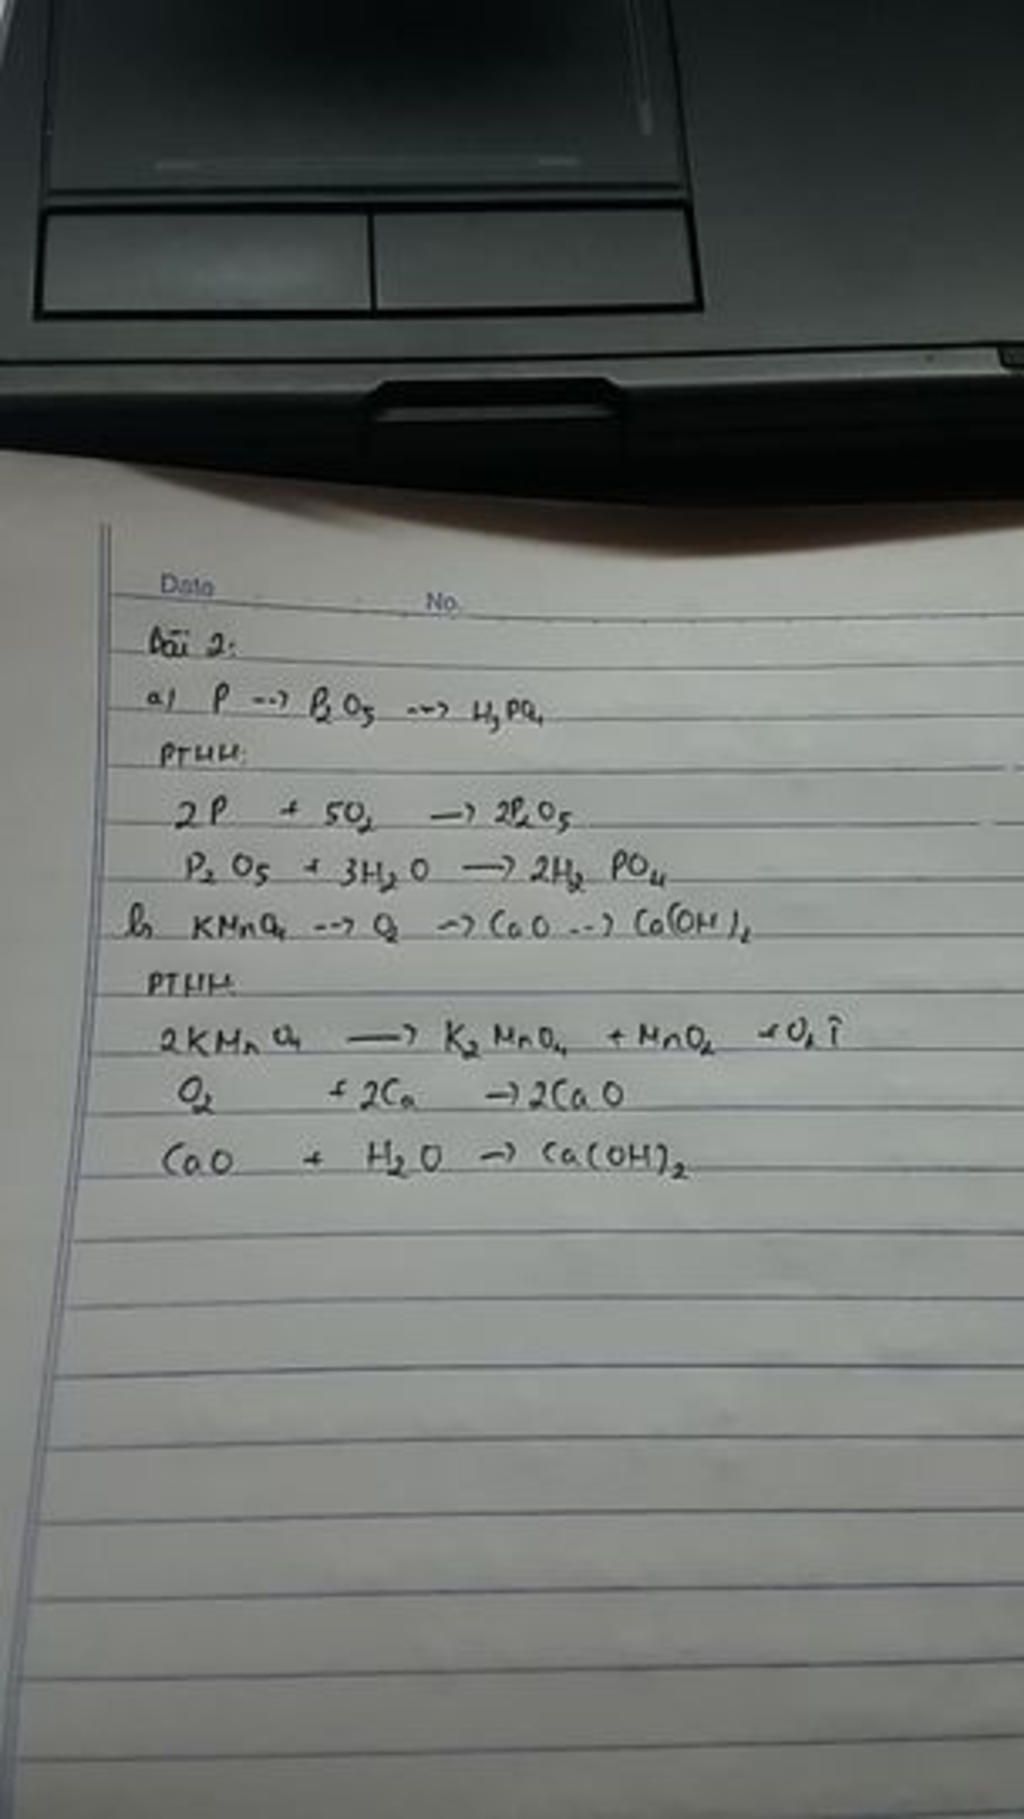 Date No.
Bài 2:
a) P --> P2O5 --> H3PO4
PTHH:
2P + 5O2 -> 2P2O5
P2O5 + 3H2O -> 2H2PO4
b, KMnO4 --> O2 -> CaO --> Ca(OH)2
PTHH:
2KMnO4 -> K2MnO4 + MnO2 + O2↑
O2 + 2Ca -> 2CaO
CaO + H2O -> Ca(OH)2